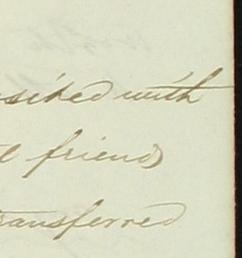 sited with
l friends
transferred